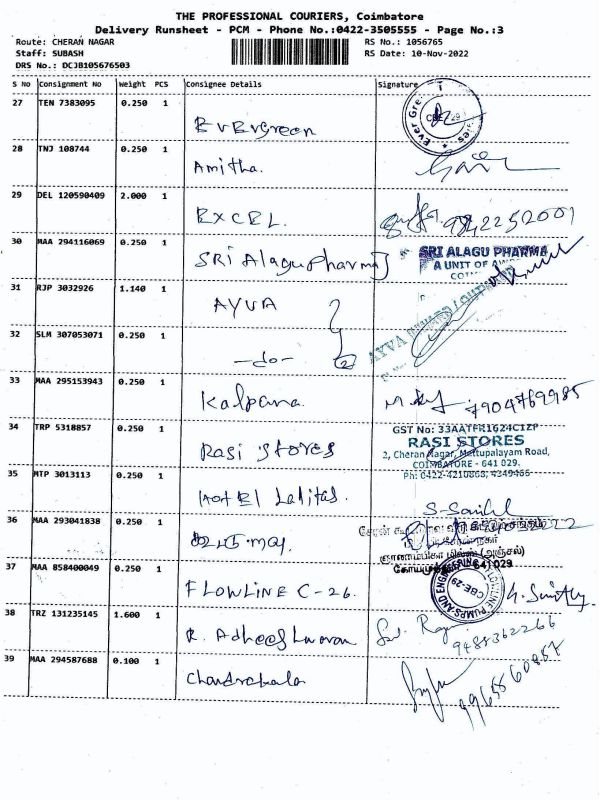 THE PROFESSIONAL COURIERS, Coimbatore
Delivery Runsheet - PCM - Phone No.:0422-3505555 - Page No.:3
Route: CHERAN NAGAR
RS No.: 1056765
Staff: SUBASH
RS Date: 10-Nov-2022
DRS No.: DCJB105676503
S No Consignment No Weight PCS Consignee Details Signature
27 TEN 7383095 0.250 1 Evergreen
Ever Gre
CBE-29
28 TNJ 108744 0.250 1 Amitha.
29 DEL 120590409 2.000 1 EXCEL. 9842252001
30 MAA 294116069 0.250 1 SRI Alagu Pharma
SRI ALAGU PHARMA
A UNIT OF
31 RJP 3032926 1.140 1 AYVA
AYVA
32 SLM 307053071 0.250 1 -do- 2
33 MAA 295153943 0.250 1 Kalpana 7904769985
34 TRP 5318857 0.250 1 Rasi Stores
GST No: 33AATFR1624C1ZP
RASI STORES
2, Cheran Nagar, Mettupalayam Road,
COIMBATORE - 641 029.
Ph: 0422-4210868, 4349466
35 MTP 3013113 0.250 1 Hotel Lalitas
36 MAA 293041838 0.250 1
(அஞ்சல்)
641 029
37 MAA 858400049 0.250 1 FLOWLINE C-26.
PUMPS AND ENGINEERING
CBE-29
38 TRZ 131235145 1.600 1 R. Adheeshwaran 9488362266
39 MAA 294587688 0.100 1 Chandrakala